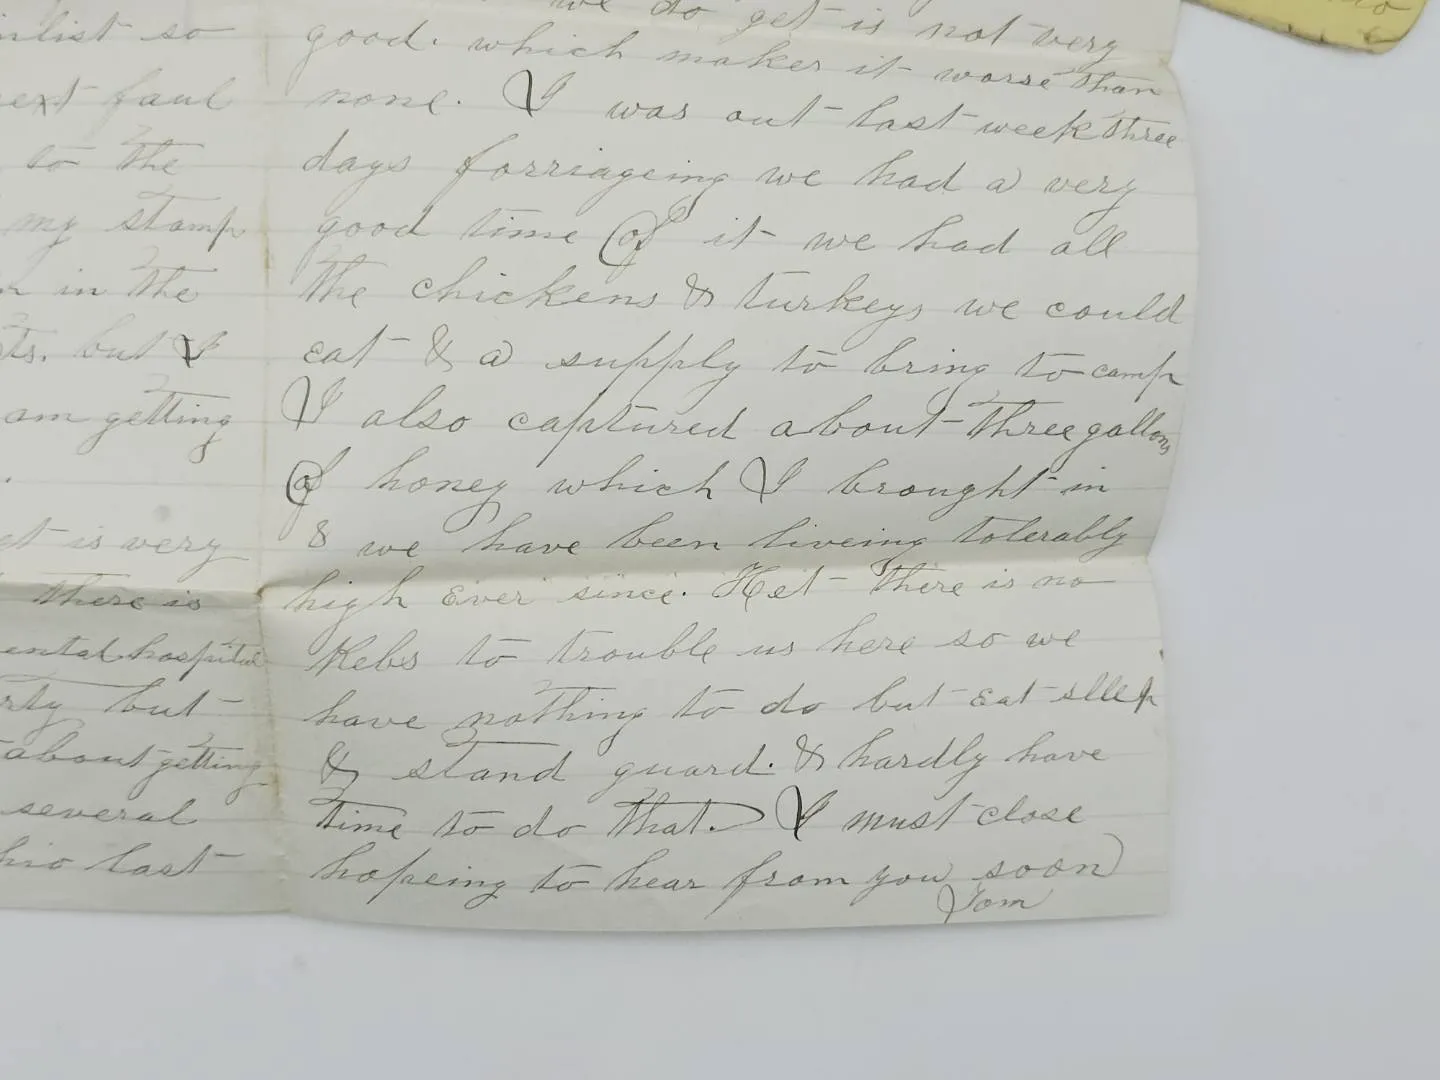 nlist so
ext faul
to the
my stamp
in the
ts. but I
am getting
et is very
there is
ental hospital
rty but
about getting
several
hio last
we do get is not very
good. which makes it worse than
none. I was out last week three
days forriageing we had a very
good time of it we had all
the chickens & turkeys we could
eat & a supply to bring to camp
I also captured about three gallons
of honey which I brought in
& we have been liveing tolerably
high Ever since. Het there is no
Rebs to trouble us here so we
have nothing to do but Eat sllep
& stand guard. & hardly have
time to do that. I must close
hopeing to hear from you soon
Tom